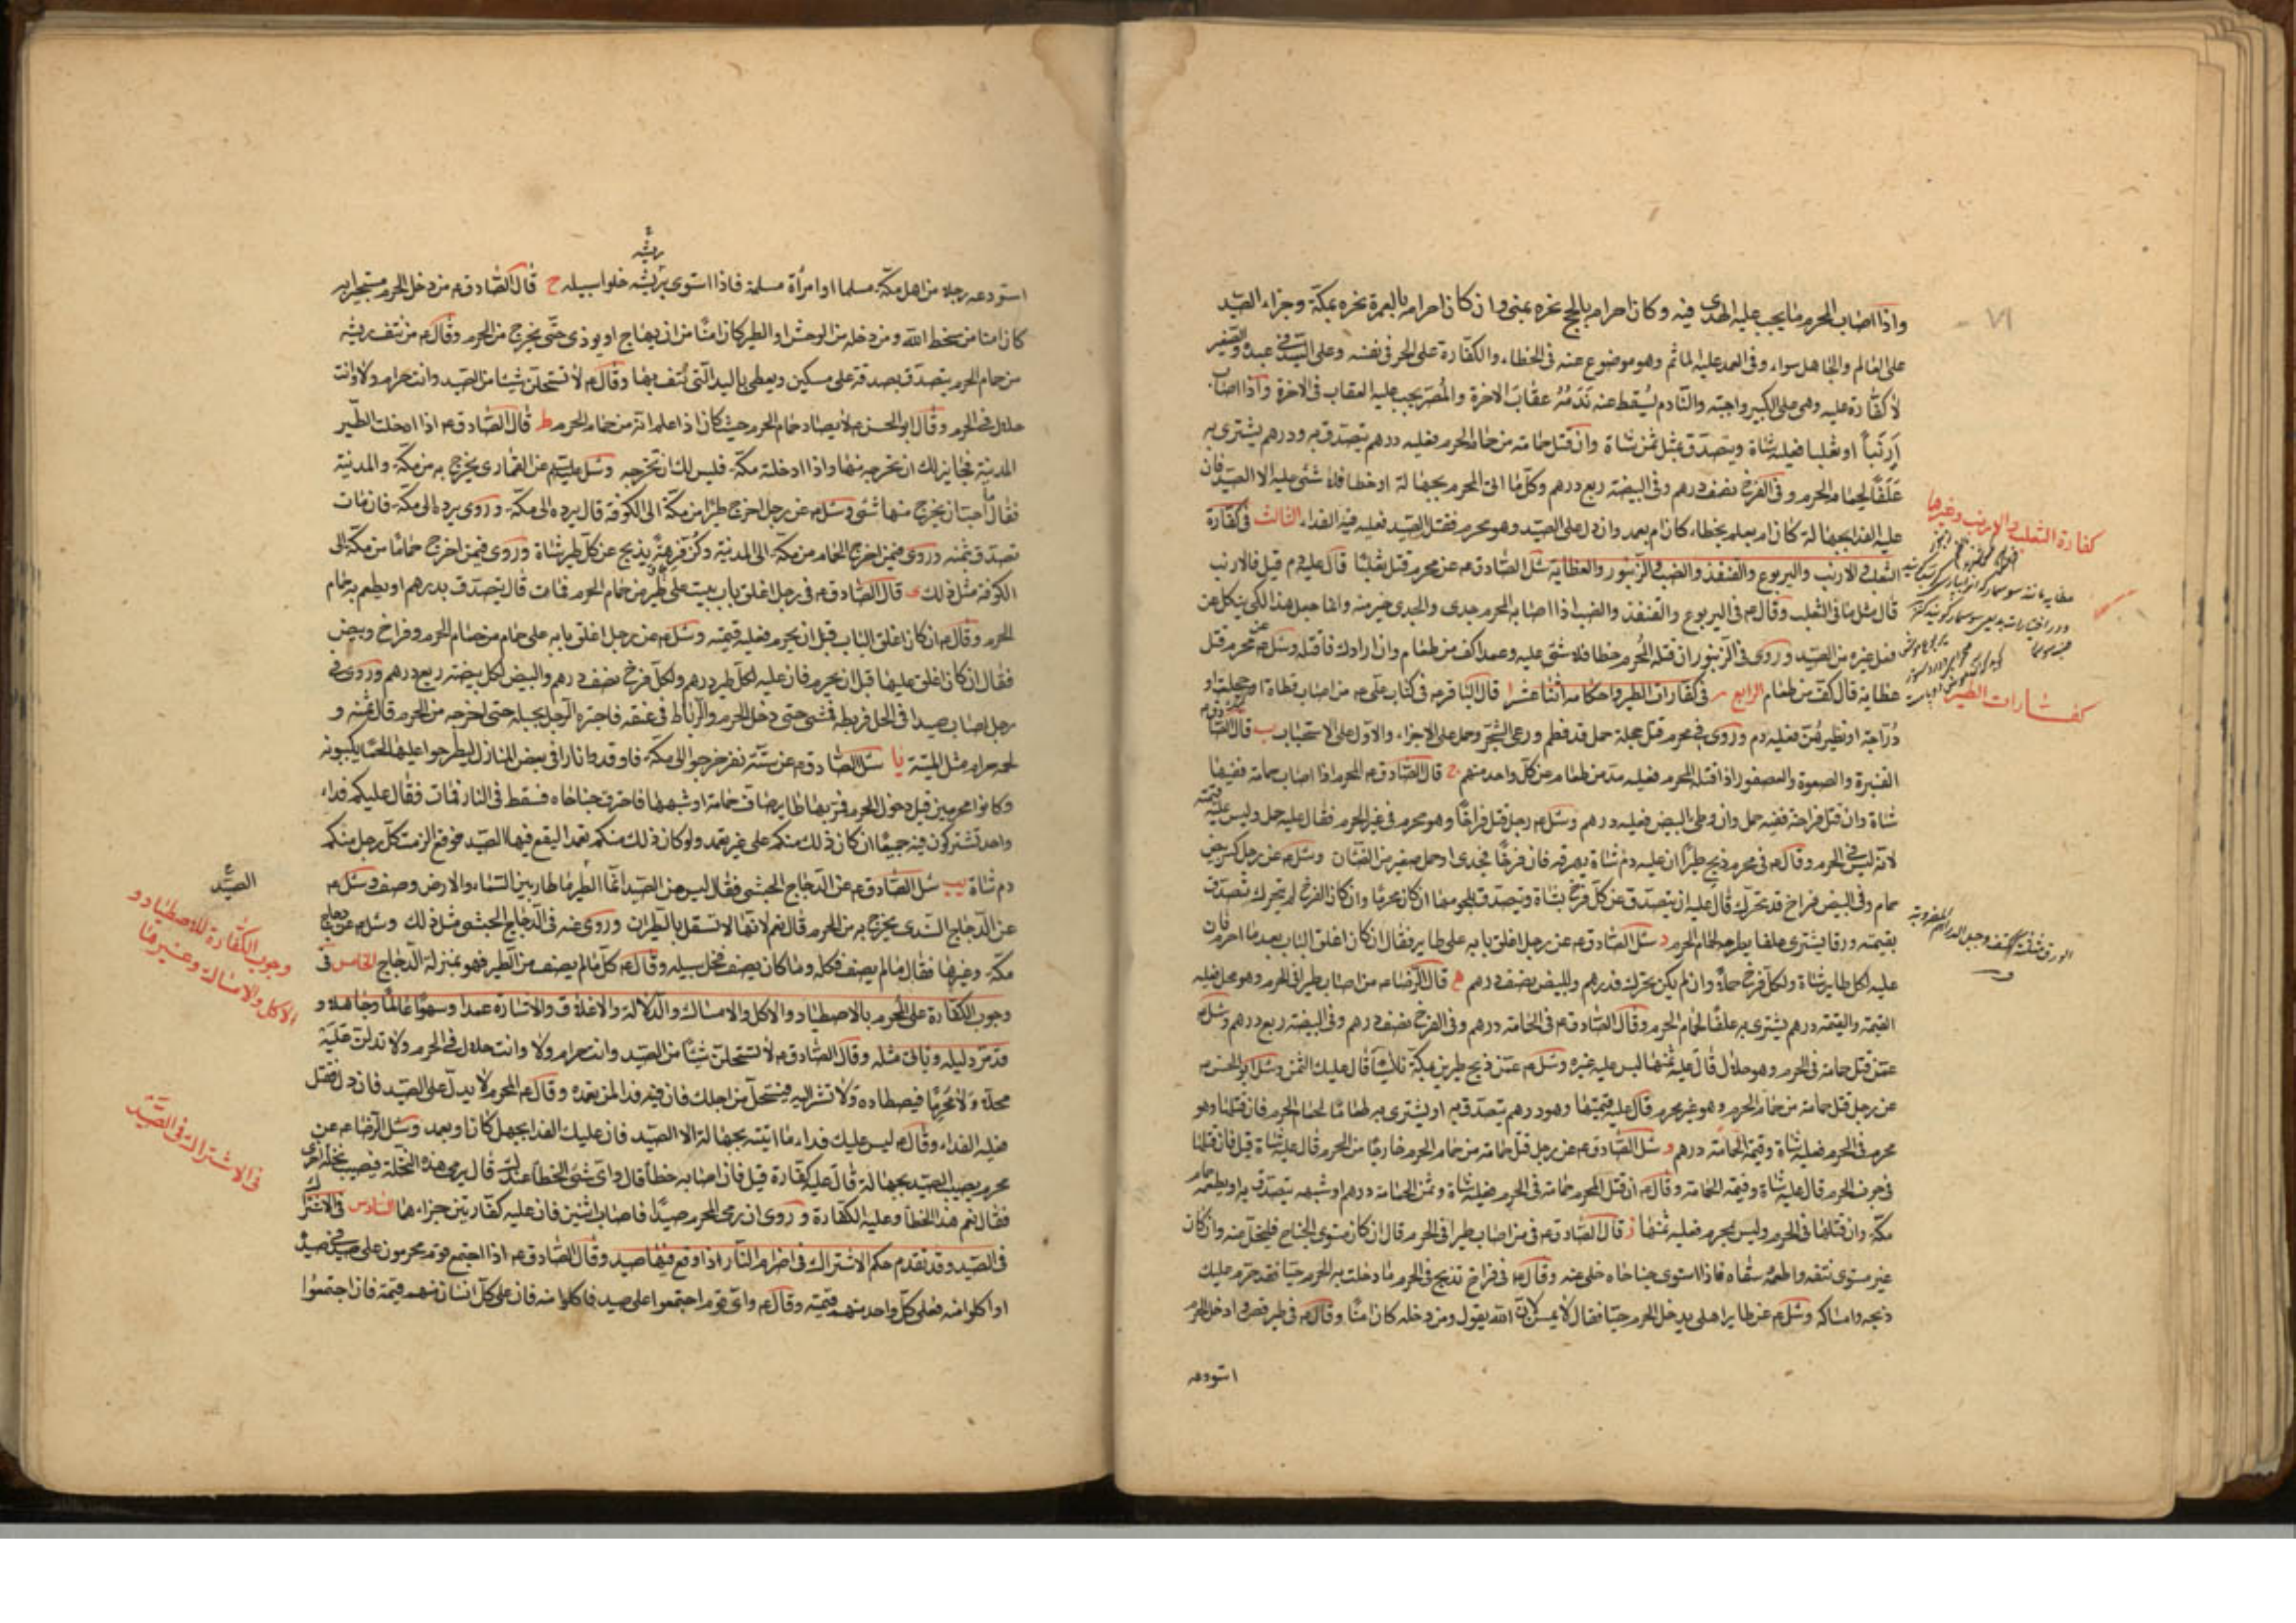 واذا اصاب المحرم ما يجب عليه الهدى فيه وكان احرامه بالحج نحره بمنى وان كان احرامه بالعمرة نحره بمكة وجزاء الصيد
على العالم والجاهل سواء وفى العمد عليه المأثم وهو موضوع عنه فى الخطاء والكفارة على الحر فى نفسه وعلى السيد فى عبده والصغير
لا كفارة عليه وهى على الكبير واجبة والنادم يسقط عنه ندمه عقاب الاخرة والمصر يجب عليه العقاب فى الاخرة واذا اصاب
ارنباً او ثعلبا فعليه شاة ويتصدق بمثل ثمن شاة وان قتل حمامة من حمام الحرم فعليه درهم يتصدق به ودرهم يشترى به
علفاً لحمام الحرم وفى الفرخ نصف درهم وفى البيضة ربع درهم وكل ما اتى المحرم بجهالة او خطا فلا شئ عليه الا الصيد فان
عليه الفدا بجهالة كان ام بعلم بخطاء كان ام بعمد وان دل على الصيد وهو محرم فقتل الصيد فعليه فيه الفداء الثالث فى كفارة
الثعلب والارنب واليربوع والقنفذ والضب والزنبور والعظاية سئل الصادق ع عن محرم قتل ثعلبا قال عليه دم قيل فالارنب
قال مثل ما فى الثعلب وقال ع فى اليربوع والقنفذ والضب اذا اصابه المحرم جدى والجدى خير منه وانما جعل هذا لكى ينكل عن
فعل غيره من الصيد وروى فى الزنبور ان قتله المحرم خطا فلا شئ عليه وعمدا كف من طعام وان ارادك فاقتله وسئل ع عن محرم قتل
عظاية قال كف من طعام الرابع فى كفارات الطير واحكامه اثنا عشر ا قال الباقر ع فى كتاب على ع من اصاب قطاة او حجلة او
دراجة او نظيرهن فعليه دم وروى فى محرم قتل حجلة حمل قد فطم ورعى الشجر وحمل على الاجزاء والاول على الاستحباب ب قال الصادق ع
القنبرة والصعوة والعصفور اذا قتله المحرم فعليه مد من طعام عن كل واحد منهم ج قال الصادق ع المحرم اذا اصاب حمامة ففيها
شاة وان قتل فراخه ففيه حمل وان وطئ البيض فعليه درهم وسئل ع رجل قتل فراخًا وهو محرم فى غير الحرم فقال عليه حمل وليس عليه قيمته
لانه ليس فى الحرم وقال ع فى محرم ذبح طيرا ان عليه دم شاة يهرقه فان فرخا فجدى او حمل صغير من الضأن وسئل ع عن رجل كسر بيض
حمام وفى البيض فراخ قد تحرك قال عليه ان يتصدق عن كل فرخ بشاة ويتصدق بلحومها ان كان محرما وان كان الفرخ لم يتحرك تصدق
بقيمته ورقا يشترى علفا يطرحه لحمام الحرم د سئل الصادق ع عن رجل اغلق بابه على طاير فقال ان كان اغلق الباب بعد ما احرم فان
عليه لكل طاير شاة ولكل فرخ حملا وان لم يكن تحرك فدرهم وللبيض نصف درهم ه قال الرضا ع من اصاب طيرا فى الحرم وهو محل فعليه
القيمة والقيمة درهم يشترى به علفًا لحمام الحرم وقال الصادق ع فى الحمامة درهم وفى الفرخ نصف درهم وفى البيضة ربع درهم وسئل ع
عمن قتل حمامة فى الحرم وهو حلال قال عليه ثمنها ليس عليه غيره وسئل ع عمن ذبح طيرين بمكة قال عليك الثمن وسئل ابو الحسن ع
عن رجل قتل حمامة من حمام الحرم وهو غير محرم قال عليه قيمتها وهو درهم يتصدق به او يشترى به طعامًا لحمام الحرم فان قتلها وهو
محرم فى الحرم فعليه شاة وقيمة الحمامة درهم و سئل الصادق ع عن رجل قتل حمامة من حمام الحرم خارجًا من الحرم قال عليه شاة قيل فان قتلها
فى جوف الحرم قال عليه شاة وقيمة الحمامة وقال ع ان قتل المحرم حمامة فى الحرم فعليه شاة وثمن الحمامة درهم او شبهه يتصدق به او يطعمه حمام
مكة وان قتلها فى الحرم وليس بمحرم فعليه ثمنها ز قال الصادق ع فى من اصاب طيرا فى الحرم قال ان كان مستوى الجناح فليخل عنه وان كان
غير مستوى نتفه واطعمه سقاه فاذا استوى جناحاه خلى عنه وقال ع فى فراخ تذبح فى الحرم ما دخلت به الحرم حيا فقد حرم عليك
ذبحه وامساكه وسئل ع عن طاير اهلى يدخل الحرم حيا فقال لا يمس لان الله يقول ومن دخله كان امنًا وقال ع فى طير قص وادخل الحرم
استودعه
٧١
كفارة الثعلب والارنب وغيرها
كفارات الطير
ريشه
استودعه رجلا من اهل مكة مسلما او امرأة مسلمة فاذا استوى ريشه خلوا سبيله ح قال الصادق ع من دخل الحرم مستجيرا به
كان امنا من سخط الله ومن دخله من الوحش او الطير كان امنًا من ان يهاج او يوذى حتى يخرج من الحرم وقال ع من نتف ريشة
من حمام الحرم يتصدق بصدقة على مسكين ويعطى باليد التى نتف بها وقال ع لا تستحلن شيئا من الصيد وانت حرام ولا وانت
حلال فى الحرم وقال ابو الحسن ع لا يصاد حمام الحرم حيث كان اذا علم انه من حمام الحرم ط قال الصادق ع اذا ادخلت الطير
المدينة فجايز لك ان تخرجه منها واذا ادخلته مكة فليس لك ان تخرجه وسئل عن القمارى يخرج به من مكة والمدينة
فقال ما احب ان يخرج منها شئ وسئل ع عن رجل اخرج طيرًا من مكة الى الكوفة قال يرده الى مكة وروى يرده الى مكة فان مات
تصدق بثمنه وروى فيمن اخرج الحمام من مكة الى المدينة يذبح عن كل طير شاة وروى فيمن اخرج حمامًا من مكة الى
الكوفة مثل ذلك ى قال الصادق ع فى رجل اغلق باب بيت على طير من حمام الحرم فمات قال يتصدق بدرهم او يطعم به حمام
الحرم وقال ع ان كان اغلق الباب قبل ان يحرم فعليه قيمته وسئل ع عن رجل اغلق بابه على حمام من حمام الحرم وفراخ وبيض
فقال ان كان اغلق عليها قبل ان يحرم فان عليه لكل طير درهم ولكل فرخ نصف درهم والبيض لكل بيضة ربع درهم وروى فى
رجل اصاب صيدا فى الحل فربطه فمشى حتى دخل الحرم والرباط فى عنقه فاجتره الرجل بحبله حتى اخرجه من الحرم قال ثمنه و
لحمه حرام مثل الميتة يا سئل الصادق ع عن ستة نفر خرجوا الى مكة فاوقدوا نارا فى بعض المنازل ليطرحوا عليها لحمًا يكببونه
وكانوا محرمين قبل دخول الحرم فمر بها طاير صاف حمامة او شبهها فاحترق جناحاه فسقط فى النار فمات فقال عليكم فداء
واحد تشتركون فيه جميعًا ان كان ذلك منكم على غير تعمد ولو كان ذلك منكم تعمدا ليقع فيها الصيد فوقع الزمت كل رجل منكم
دم شاة يب سئل الصادق ع عن الدجاج الحبشى فقال ليس من الصيد انما الطير ما طار بين السماء والارض وصف وسئل ع
عن الدجاج السندى يخرج به من الحرم قال نعم لانها لا تستقل بالطيران وروى عنه فى الدجاج الحبشى مثل ذلك وسئل ع عن دجاج
مكة وغيرها فقال ما لم يصف فكله وما كان يصف فخل سبيله وقال ع كل ما لم يصف من الطير فهو بمنزلة الدجاج الخامس فى
وجوب الكفارة على المحرم بالاصطياد والاكل والامساك والدلالة والاغلاق والاشارة عمدا وسهوًا عالمًا وجاهلا و
قد مر دليله ويأتى مثله وقال الصادق ع لا تستحلن شيئًا من الصيد وانت حرام ولا وانت حلال فى الحرم ولا تدلن عليه
محلا ولا محرمًا فيصطاده ولا تشر اليه فيستحل من اجلك فان فيه فدا لمن تعمده وقال ع المحرم لا يدل على الصيد فان دل فقتل
فعليه الفداء وقال ع ليس عليك فداء ما اتيته بجهالة الا الصيد فان عليك الفدا بجهل كان او بعمد وسئل الرضا ع عن
محرم يصيب الصيد بجهالة قال عليه كفارة قيل فان اصابه خطأ قال واى شئ الخطأ عندك قال يرمى هذه النخلة فيصيب نخلة اخرى
فقال نعم هذا الخطأ وعليه الكفارة وروى ان رمى المحرم صيدًا فاصاب اثنين فان عليه كفارتين جزاءهما السادس فى الاشتراك
فى الصيد وقد تقدم حكم الاشتراك فى اضرام النار اذا وقع فيها صيد وقال الصادق ع اذا اجتمع قوم محرمون على صيد فى صيده
او اكلوا منه فعلى كل واحد منهم قيمته وقال ع واى قوم اجتمعوا على صيد فاكلوا منه فان على كل انسان منهم قيمة فان اجتمعوا
الصيد
وجوب الكفارة للاصطياد و
الاكل والامساك وغيرها
فى الاشتراك فى الصيد